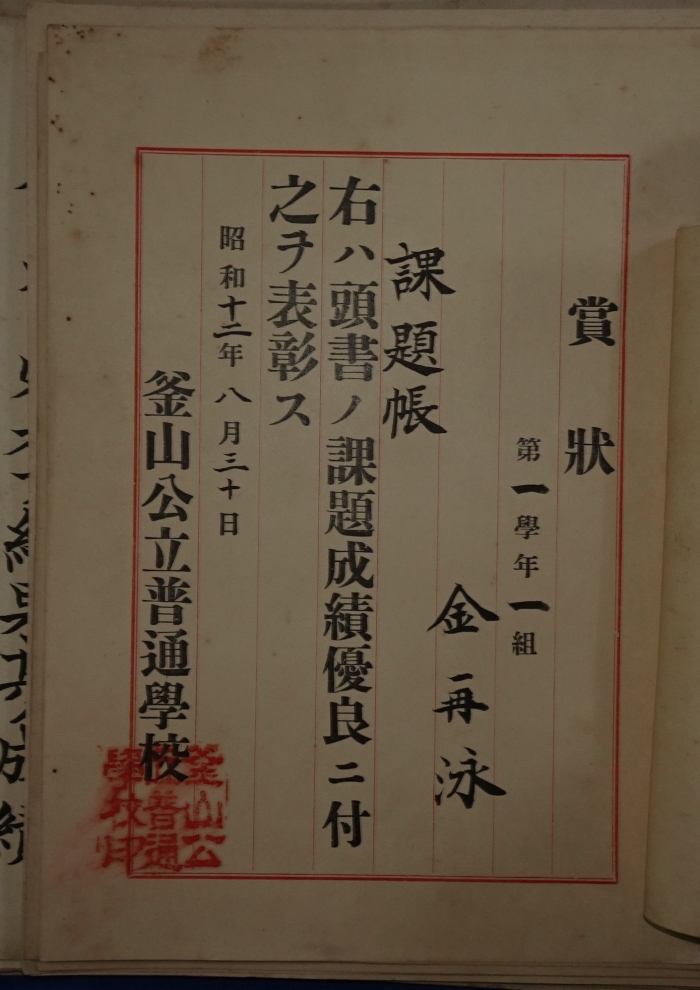 賞狀
第一學年一組
金再泳
課題帳
右ハ頭書ノ課題成績優良ニ付
之ヲ表彰ス
昭和十二年八月三十日
釜山公立普通學校
釜山公
立普通
學校印